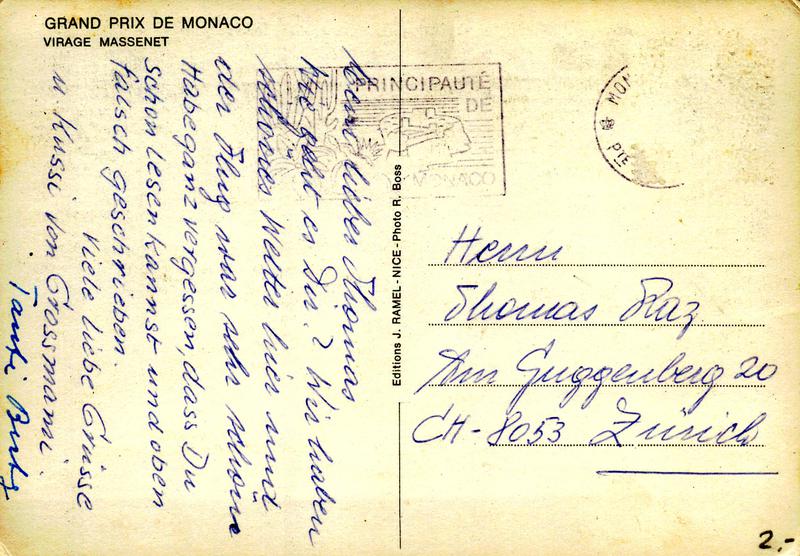 GRAND PRIX DE MONACO
VIRAGE MASSENET
PRINCIPAUTÉ
DE
MONACO
MON
PTE
Mein liebes Thomas
Wie geht es Dir? Wir haben
schönes Wetter hier und
der Flug war sehr schön
Habe ganz vergessen, dass Du
schon lesen kannst und oben
falsch geschrieben.
Viele liebe Grüsse
u Kussi von Grossmami
Tante
Editions J. RAMEL - NICE - Photo R. Boss
Herrn
Thomas Raz
Am Guggenberg 20
CH-8053 Zürich
2,-